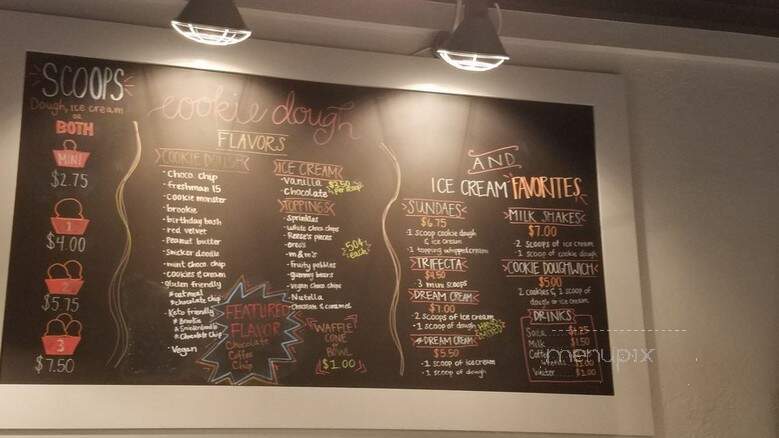 SCOOPS
Dough, ice cream
or
BOTH
MINI
$2.75
1
$4.00
2
$5.75
3
$7.50
cookie dough
FLAVORS
COOKIE DOUGH
- Choco chip
- freshman 15
- cookie monster
- brookie
- birthday bash
- red velvet
- Peanut butter
- snicker doodle
- mint choco. chip
- cookies & cream
- gluten friendly
* oatmeal
* chocolate chip
- Keto friendly
* Brookie
* Snickerdoodle
* Chocolate Chip
- Vegan
ICE CREAM
- Vanilla
- Chocolate
$2.50
per scoop
TOPPINGS
- Sprinkles
- white choco chips
- Reese's pieces
- oreo's
- m&m's
- fruity pebbles
- gummy bears
- vegan choco chips
- Nutella
- chocolate & caramel
50¢
each!
FEATURED
FLAVOR
Chocolate
Coffee
Chip
WAFFLE
CONE
or
BOWL
$1.00
AND
ICE CREAM FAVORITES
SUNDAES
$6.75
- 1 scoop cookie dough
& ice cream
- 1 topping whipped cream
TRIFECTA
$4.50
- 3 mini scoops
DREAM CREAM
$7.00
- 2 scoops of ice cream
- 1 scoop of dough
DREAM CREAM
$5.50
- 1 scoop of ice cream
- 1 scoop of dough
MILK SHAKES
$7.00
- 2 scoops of ice cream
- 1 scoop of cookie dough
COOKIE DOUGHWICH
$5.00
2 cookies & 2 scoop of
dough or ice cream
DRINKS
Soda $1.25
Milk $1.50
Coffee
$2.00
Water $2.00
menupix